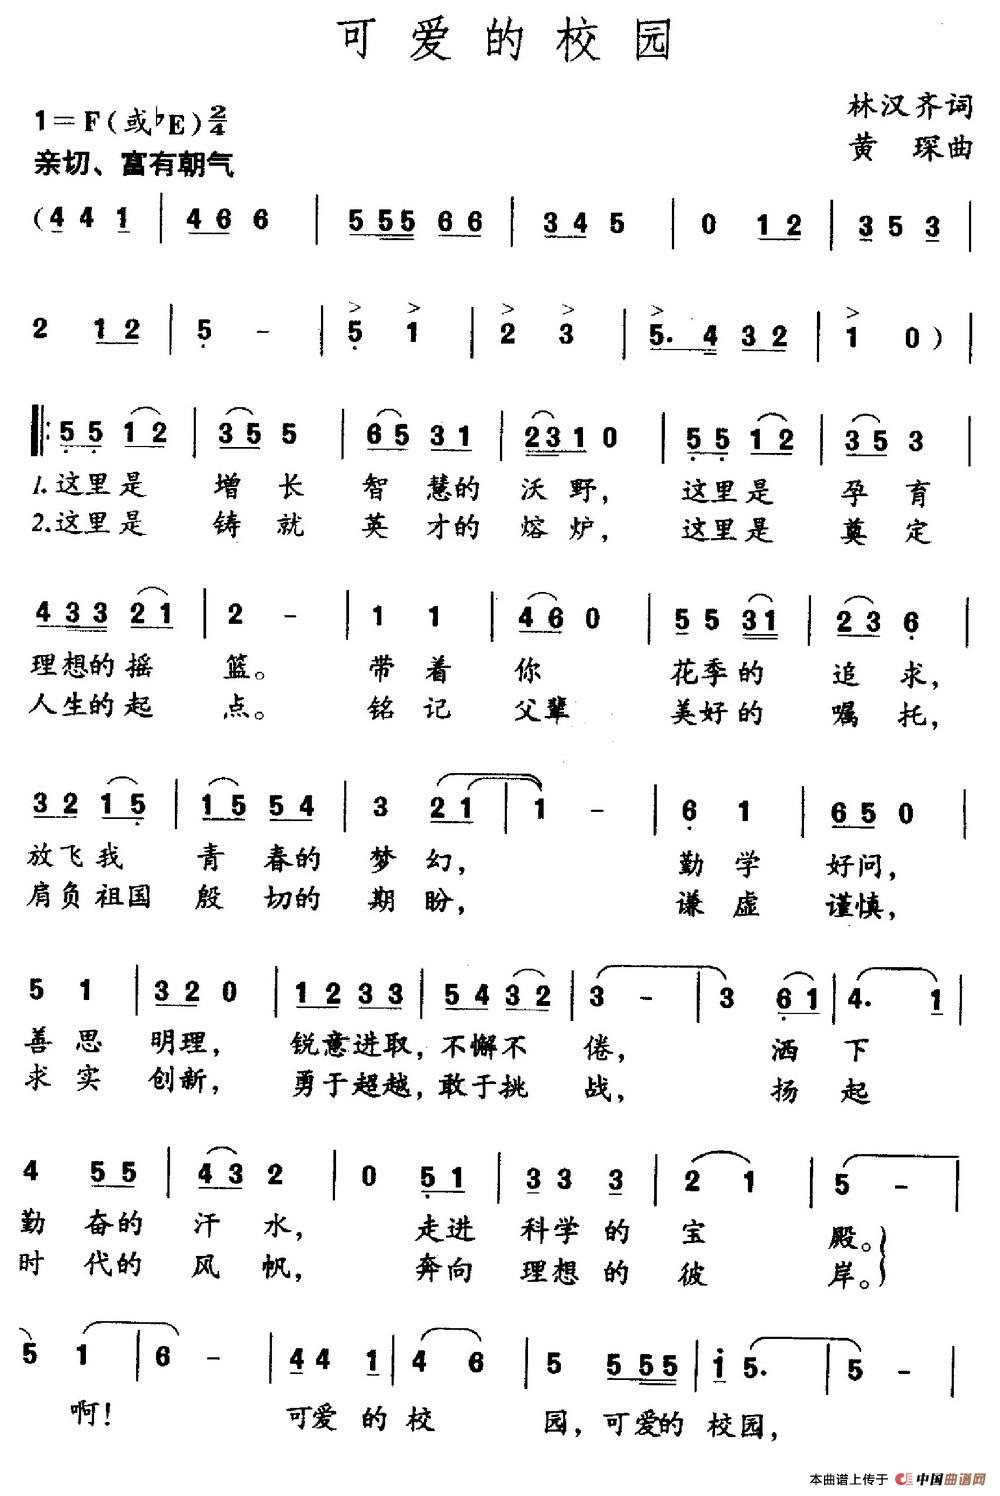 可爱的校园
1=F(或♭E) 2/4
林汉齐词
亲切、富有朝气
黄 琛曲
(4 4 1 | 4 6 6 | 5 5 5 6 6 | 3 4 5 | 0 1 2 | 3 5 3 |
2 1 2 | 5 - | 5 1 | 2 3 | 5. 4 3 2 | 1 0) |
‖: 5 5 1 2 | 3 5 5 | 6 5 3 1 | 2 3 1 0 | 5 5 1 2 | 3 5 3 |
1.这里是 增 长 智 慧的 沃 野, 这里是 孕 育
2.这里是 铸 就 英 才的 熔 炉, 这里是 奠 定
4 3 3 2 1 | 2 - | 1 1 | 4 6 0 | 5 5 3 1 | 2 3 6 |
理想的 摇 篮。 带 着 你 花季的 追 求,
人生的 起 点。 铭 记 父辈 美好的 嘱 托,
3 2 1 5 | 1 5 5 4 | 3 2 1 | 1 - | 6 1 | 6 5 0 |
放飞我 青 春的 梦 幻, 勤 学 好问,
肩负祖国 殷 切的 期 盼, 谦 虚 谨慎,
5 1 | 3 2 0 | 1 2 3 3 | 5 4 3 2 | 3 - | 3 6 1 | 4. 1 |
善 思 明理, 锐意进取, 不懈不 倦, 洒 下
求 实 创新, 勇于超越, 敢于挑 战, 扬 起
4 5 5 | 4 3 2 | 0 5 1 | 3 3 3 | 2 1 | 5 - |
勤 奋的 汗 水, 走进 科学的 宝 殿。
时 代的 风 帆, 奔向 理想的 彼 岸。
5 1 | 6 - | 4 4 1 | 4 6 | 5 5 5 5 | i 5. | 5 - |
啊! 可爱 的 校 园, 可爱的 校园,
本曲谱上传于 中国曲谱网